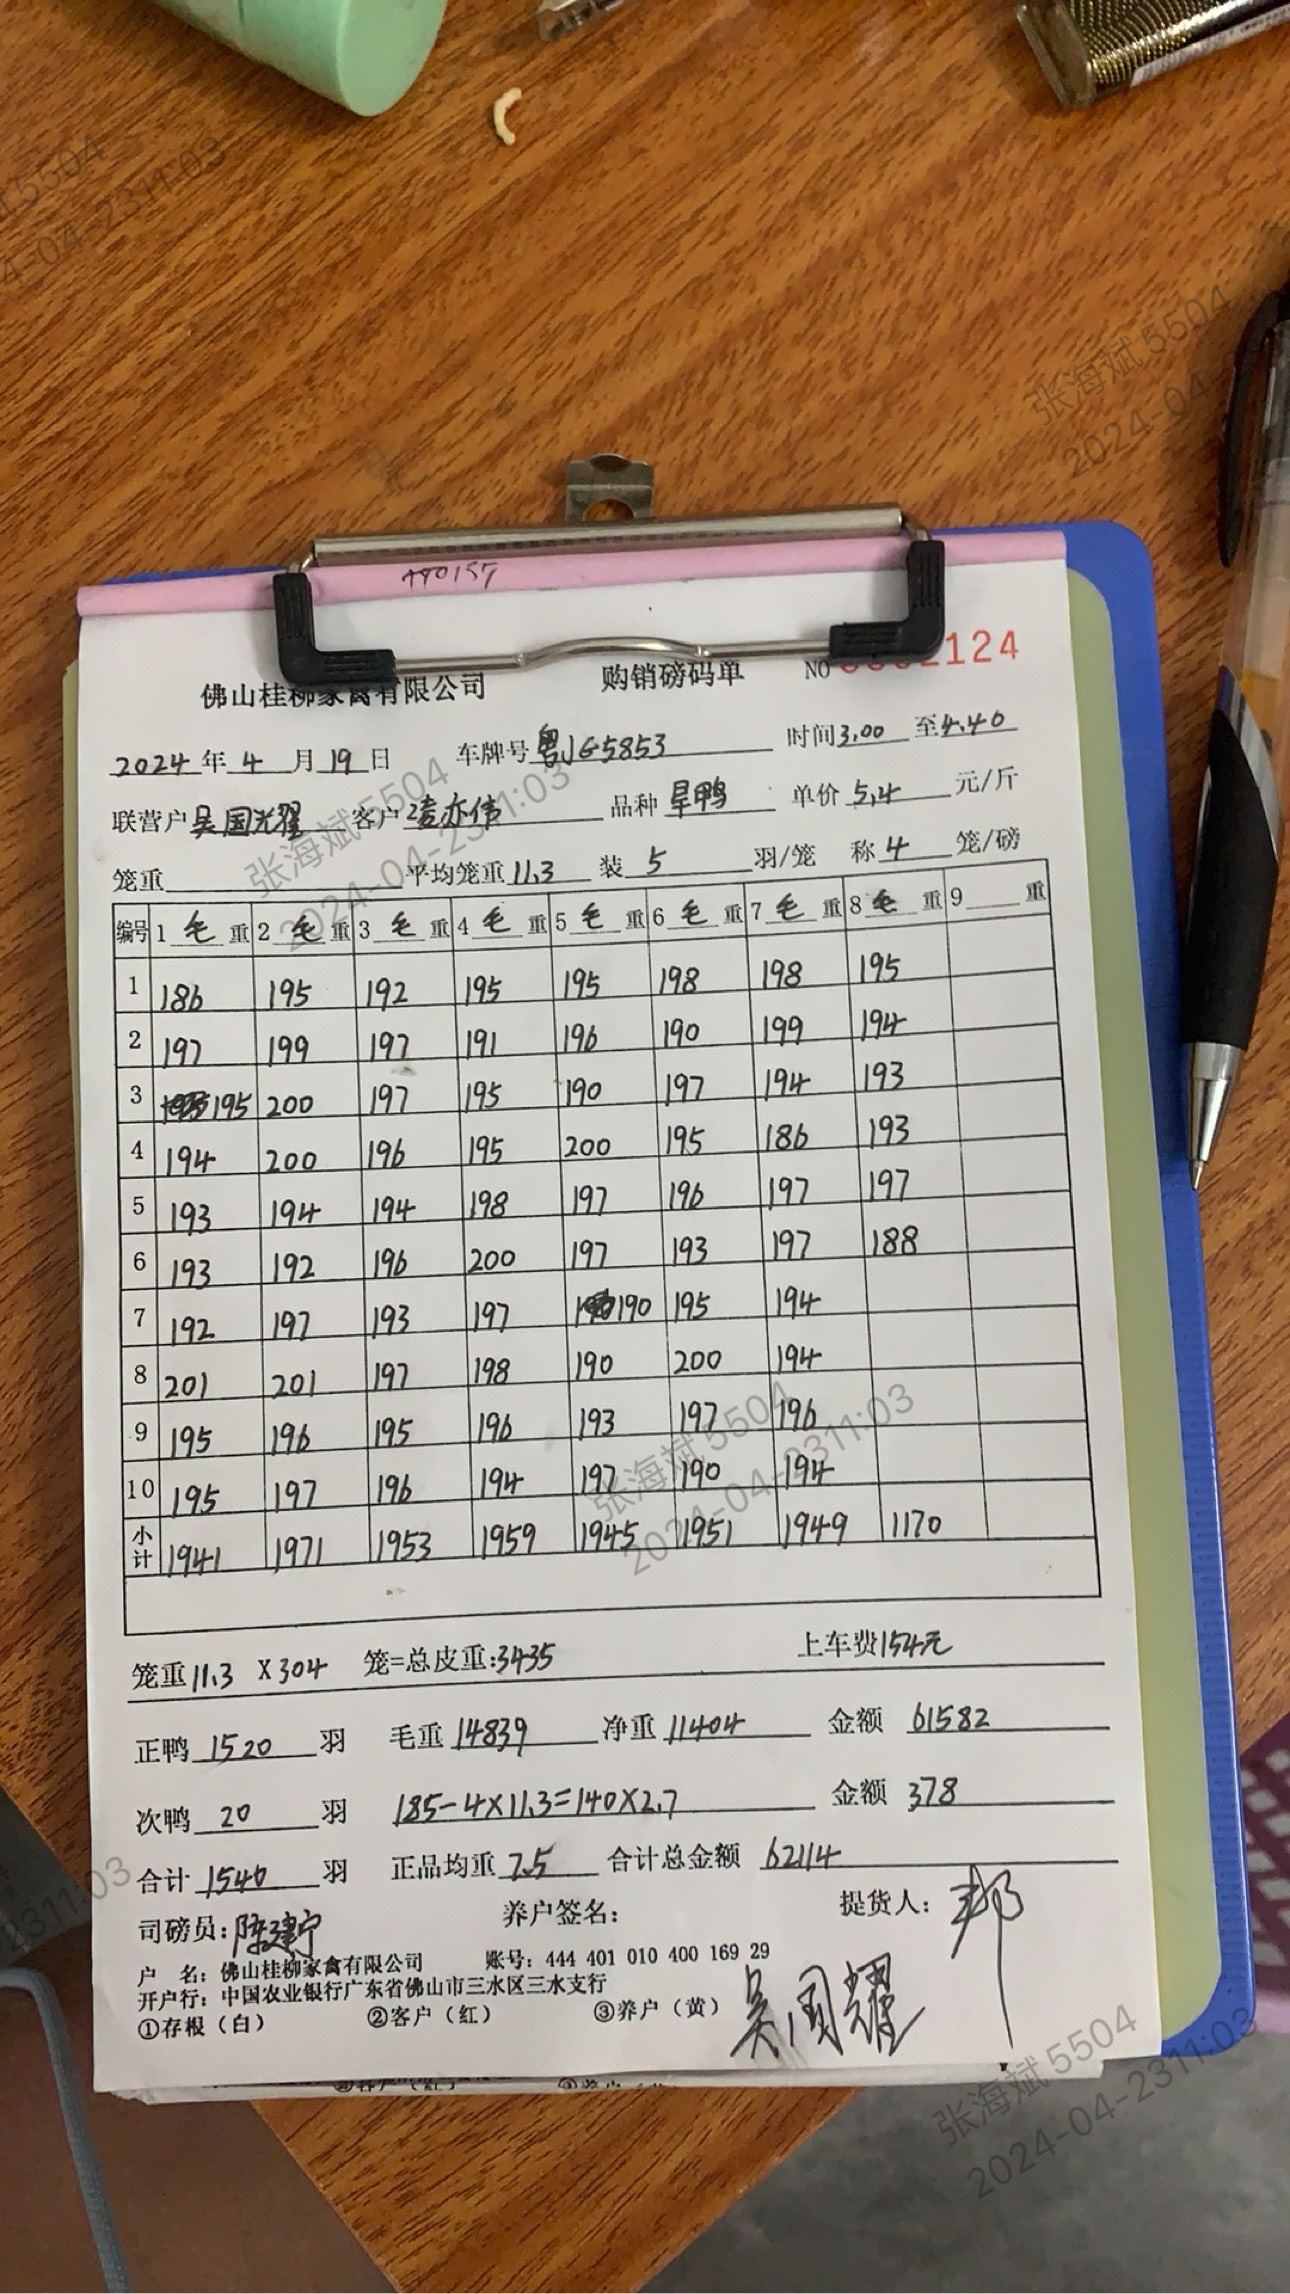 佛山桂柳家禽有限公司 购销磅码单 NO 2124
2024年4月19日 车牌号粤JG5853 时间3.00至4.40
联营户吴国光耀 客户凌亦伟 品种旱鸭 单价5.4元/斤
笼重 平均笼重11.3 装5羽/笼 称4笼/磅
编号 1毛重 2毛重 3毛重 4毛重 5毛重 6毛重 7毛重 8毛重 9 重
1 186 195 192 195 195 198 198 195
2 197 199 197 191 196 190 199 194
3 195 200 197 195 190 197 194 193
4 194 200 196 195 200 195 186 193
5 193 194 194 198 197 196 197 197
6 193 192 196 200 197 193 197 188
7 192 197 193 197 190 195 194
8 201 201 197 198 190 200 194
9 195 196 195 196 193 197 196
10 195 197 196 194 197 190 194
小计 1941 1971 1953 1959 1945 1951 1949 1170
笼重11.3 X304 笼=总皮重:3435 上车费154元
正鸭1520羽 毛重14839 净重11404 金额61582
次鸭20羽 185-4X11.3=140X2.7 金额378
合计1540羽 正品均重7.5 合计总金额62114
司磅员:陈建宁 养户签名: 提货人:邦
户 名:佛山桂柳家禽有限公司 账号:444 401 010 400 169 29
开户行:中国农业银行广东省佛山市三水区三水支行
①存根(白) ②客户(红) ③养户(黄) 吴国耀
张海斌5504
2024-04-2311:03